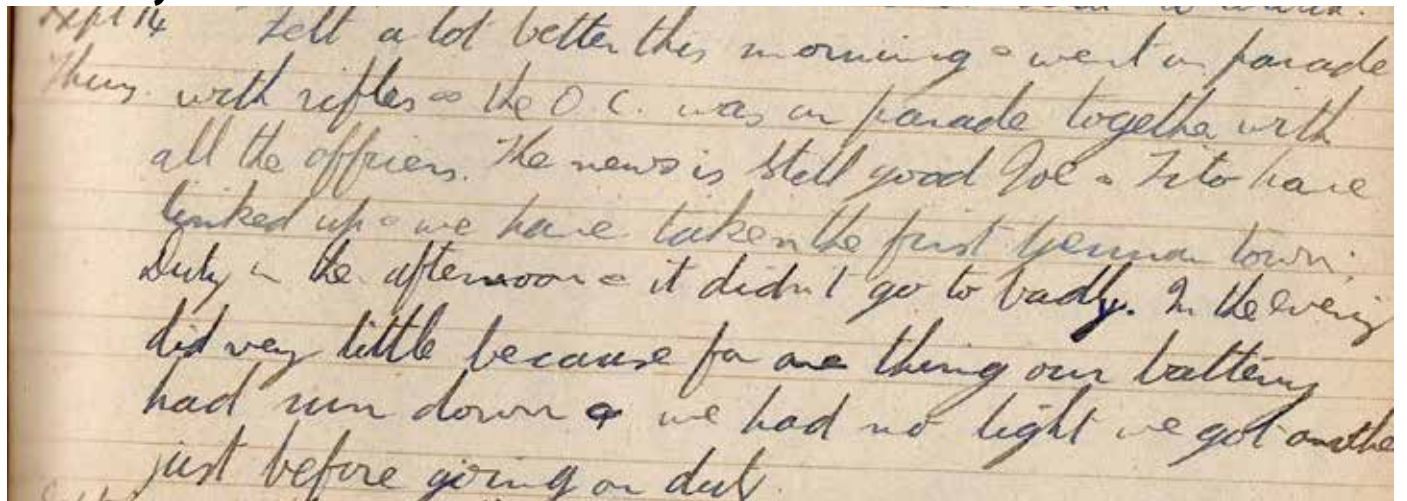 Sept 14 Felt a lot better this morning & went on parade
Thurs. with rifles & the O.C. was on parade together with
all the officers. The news is still good Joe & Tito have
linked up & we have taken the first German town.
Duty in the afternoon & it didn't go to badly. In the evening
did very little because for one thing our battery
had run down & we had no light we got another
just before going on duty.